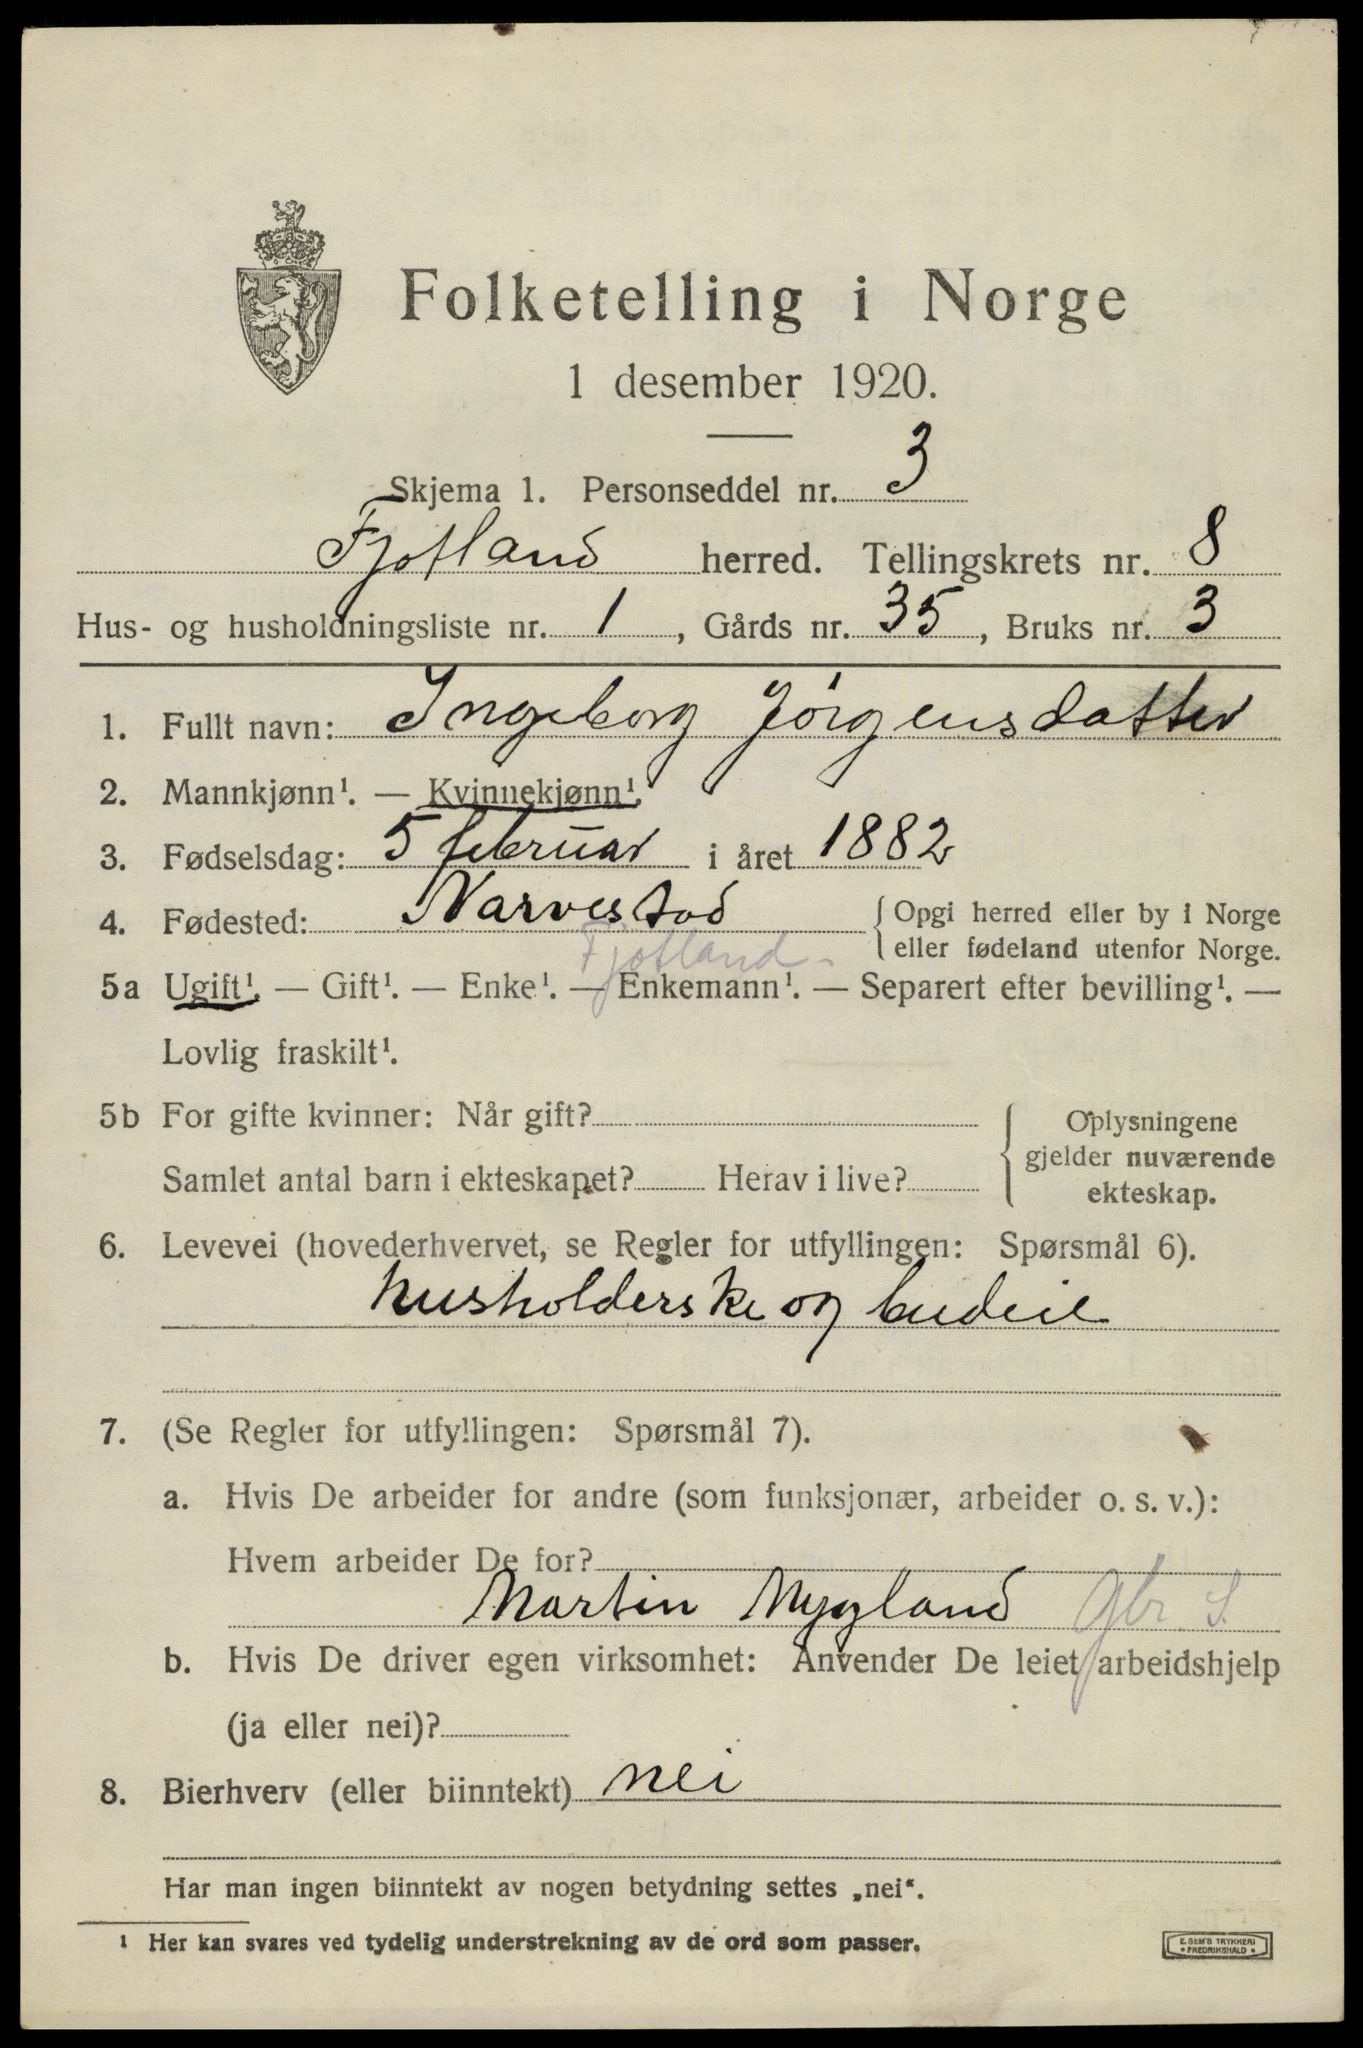 Folketelling i Norge
1 desember 1920.
Skjema 1. Personseddel nr. 3
Fjotland herred. Tellingskrets nr. 8
Hus- og husholdningsliste nr. 1, Gårds nr. 35, Bruks nr. 3
1. Fullt navn: Ingeborg Jørgensdatter
2. Mannkjønn¹. — Kvinnekjønn¹.
3. Fødselsdag: 5 februar i året 1882
4. Fødested: Narvestad { Opgi herred eller by i Norge
eller fødeland utenfor Norge.
Fjotland
5a Ugift¹. — Gift¹. — Enke¹. — Enkemann¹. — Separert efter bevilling¹. —
Lovlig fraskilt¹.
5b For gifte kvinner: Når gift?
Samlet antal barn i ekteskapet? Herav i live?
{ Oplysningene
gjelder nuværende
ekteskap.
6. Levevei (hovederhvervet, se Regler for utfyllingen: Spørsmål 6).
husholderske og budeie
7. (Se Regler for utfyllingen: Spørsmål 7).
a. Hvis De arbeider for andre (som funksjonær, arbeider o. s. v.):
Hvem arbeider De for?
Martin Mygland Gbr. S.
b. Hvis De driver egen virksomhet: Anvender De leiet arbeidshjelp
(ja eller nei)?
8. Bierhverv (eller biinntekt) nei
Har man ingen biinntekt av nogen betydning settes „nei“.
¹ Her kan svares ved tydelig understrekning av de ord som passer.
E. SEM'S TRYKKERI
FREDRIKSHALD